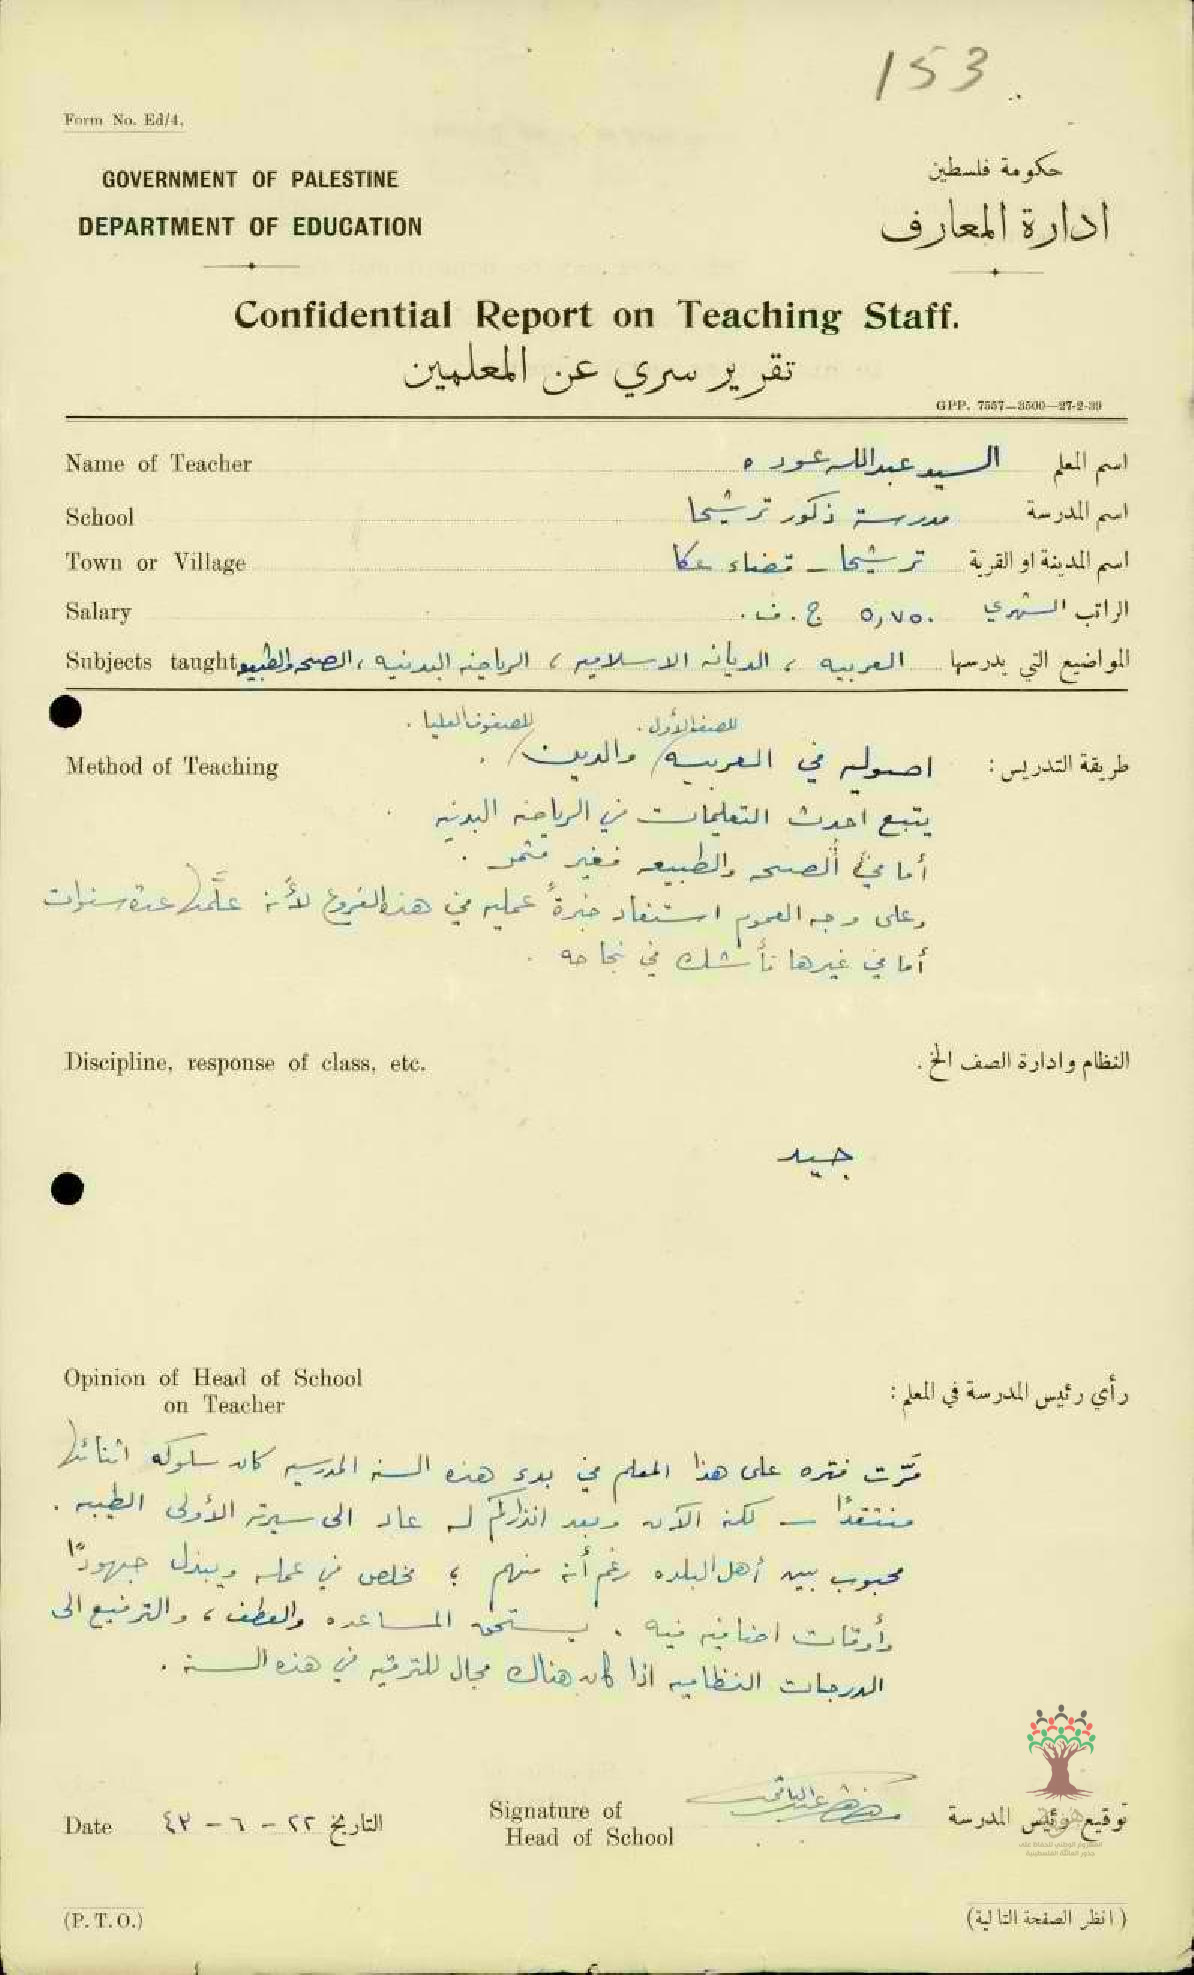 153
Form No. Ed/4.
GOVERNMENT OF PALESTINE
حكومة فلسطين
DEPARTMENT OF EDUCATION
ادارة المعارف
Confidential Report on Teaching Staff.
تقرير سري عن المعلمين
GPP. 7557—3500—27-2-39
Name of Teacher السيد عبدالله عوده اسم المعلم
School مدرسة ذكور ترشيحا اسم المدرسة
Town or Village ترشيحا – قضاء عكا اسم المدينة او القرية
Salary ٥,٧٥٠ ج. ف. الراتب الشهري
Subjects taught العربيه ، الديانه الاسلاميه ، الرياضه البدنيه ، الصحه والطبيعه المواضيع التي يدرسها
للصف الأول . للصفوف العليا .
Method of Teaching
طريقة التدريس : اصوليه في العربيه / والدين / .
يتبع احدث التعليمات في الرياضه البدنيه .
أما في الصحه والطبيعه فغير مثمر .
وعلى وجه العموم استفاد خبرةً عمليه في هذه الفروع لأنه علّمها عدة سنوات
أما في غيرها فأشك في نجاحه .
Discipline, response of class, etc.
النظام وادارة الصف الخ .
جيد
Opinion of Head of School
on Teacher
رأي رئيس المدرسة في المعلم :
مرّت فتره على هذا المعلم في بدء هذه السنه المدرسيه كان سلوكه اثنائها
منتقداً – لكنه الآن وبعد انذاركم له عاد الى سيرته الأولى الطيبه .
محبوب بين أهل البلده رغم أنه منهم ؛ مخلص في عمله ويبذل جهوداً
وأوقات اضافيه فيه . يستحق المساعده والعطف ، والترفيع الى
الدرجات النظاميه اذا كان هناك مجال للترقيه في هذه السنه .
Date ٢٢ – ٦ – ٤٣ التاريخ
Signature of
Head of School
توقيع رئيس المدرسة
هوية
المشروع الوطني للحفاظ على
جذور العائلة الفلسطينية
(P. T. O.)
(انظر الصفحة التالية)